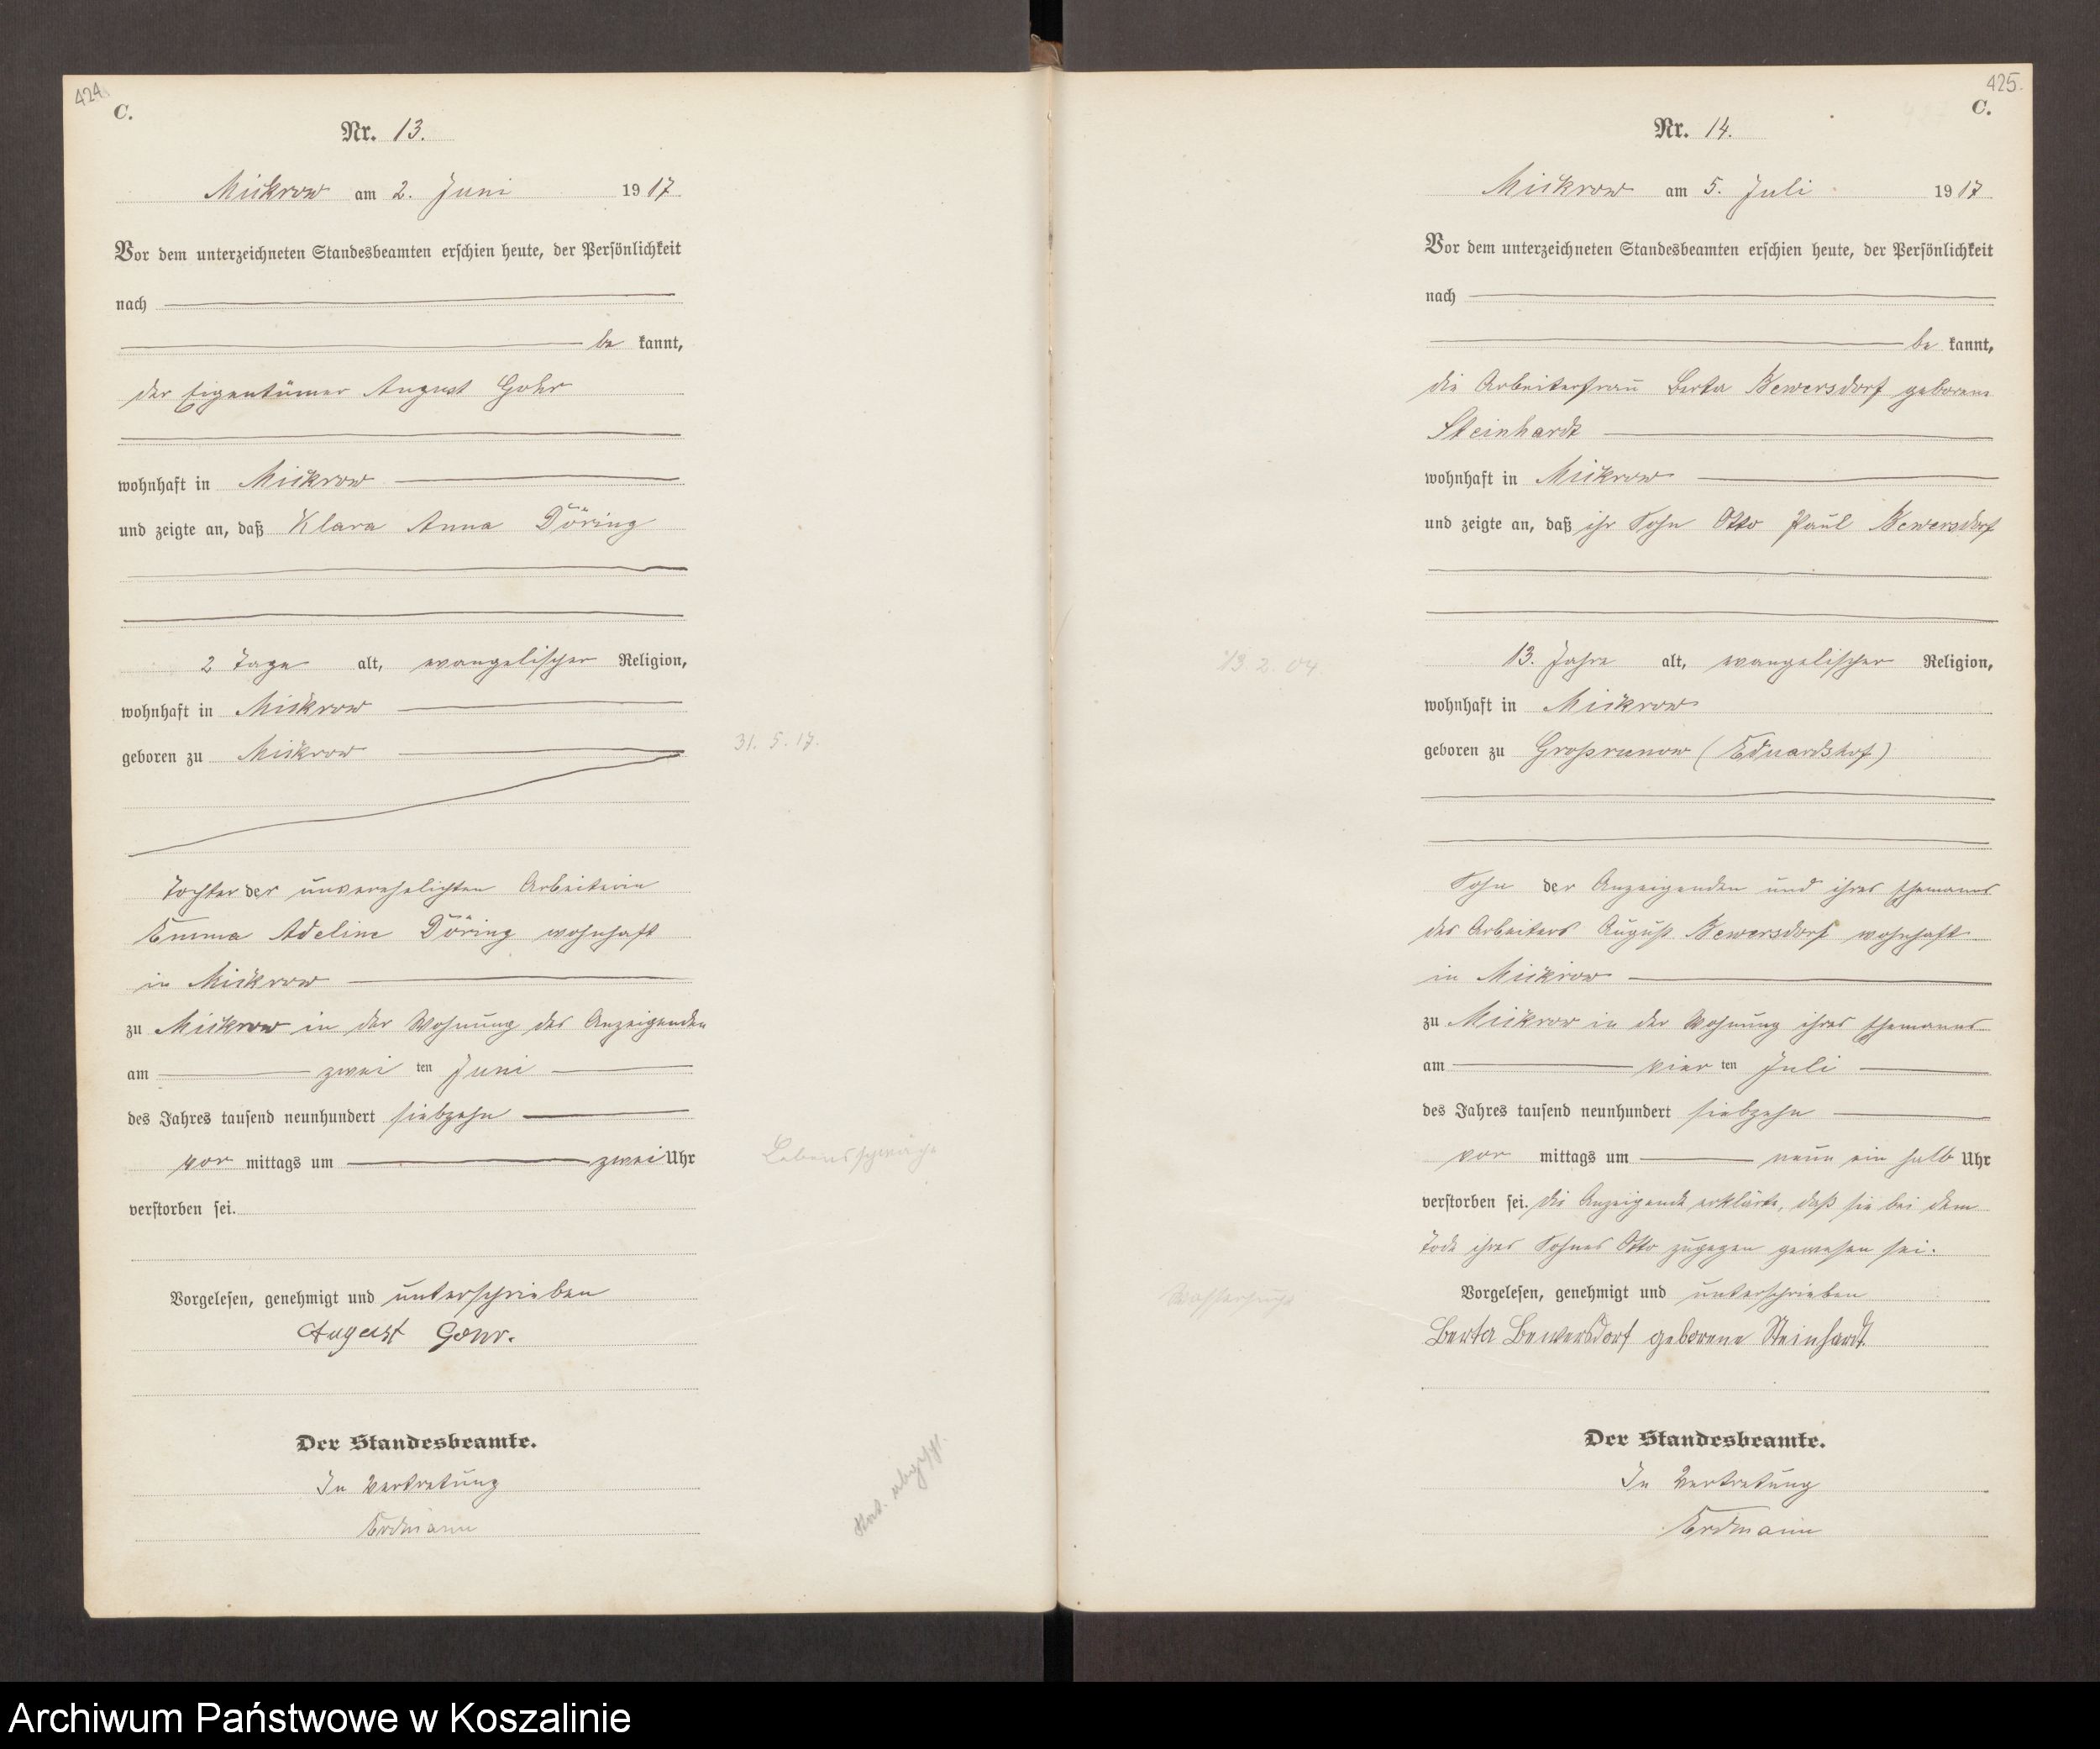 424.
C.
Nr. 13.
Mickrow am 2. Juni 1917
Vor dem unterzeichneten Standesbeamten erschien heute, der Persönlichkeit
nach
be kannt,
der Eigentümer August Gohr
wohnhaft in Mickrow
und zeigte an, daß Klara Anna Döring
2 Tage alt, evangelischer Religion,
wohnhaft in Mickrow
geboren zu Mickrow
31. 5. 17.
Tochter der unverehelichten Arbeiterin
Emma Adeline Döring wohnhaft
in Mickrow
zu Mickrow in der Wohnung des Anzeigenden
am zwei ten Juni
des Jahres tausend neunhundert siebzehn
vor mittags um zwei Uhr
Lebensschwäche
verstorben sei.
Vorgelesen, genehmigt und unterschrieben
August Gohr.
Der Standesbeamte.
In Vertretung
Erdmann
425.
C.
Nr. 14.
Mickrow am 5. Juli 1917
Vor dem unterzeichneten Standesbeamten erschien heute, der Persönlichkeit
nach
be kannt,
die Arbeiterfrau Berta Bewersdorf geborene
Steinhardt
wohnhaft in Mickrow
und zeigte an, daß ihr Sohn Otto Paul Bewersdorf
13. 2. 04
13. Jahre alt, evangelischer Religion,
wohnhaft in Mickrow
geboren zu Großrunow (Eduardshof)
Sohn der Anzeigenden und ihres Ehemanns
des Arbeiters August Bewersdorf wohnhaft
in Mickrow
zu Mickrow in der Wohnung ihres Ehemannes
am vier ten Juli
des Jahres tausend neunhundert siebzehn
vor mittags um neun ein halb Uhr
verstorben sei. Die Anzeigende erklärte, daß sie bei dem
Tode ihres Sohnes Otto zugegen gewesen sei.
Vorgelesen, genehmigt und unterschrieben
Berta Bewersdorf geborene Steinhardt
Der Standesbeamte.
In Vertretung
Erdmann
Archiwum Państwowe w Koszalinie